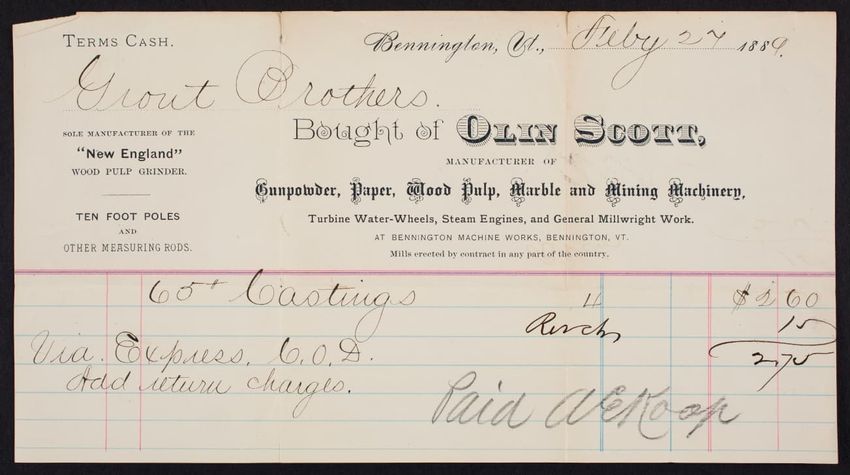 TERMS CASH.
Bennington, Vt., Feby 27 1889.
Grout Brothers.
SOLE MANUFACTURER OF THE
"New England"
WOOD PULP GRINDER.
TEN FOOT POLES
AND
OTHER MEASURING RODS.
Bought of OLIN SCOTT,
MANUFACTURER OF
Gunpowder, Paper, Wood Pulp, Marble and Mining Machinery,
Turbine Water-Wheels, Steam Engines, and General Millwright Work.
AT BENNINGTON MACHINE WORKS, BENNINGTON, VT.
Mills erected by contract in any part of the country.
65# Castings 4 $2 60
15
2.75
Via. Express. C.O.D.
Add return charges.
Paid